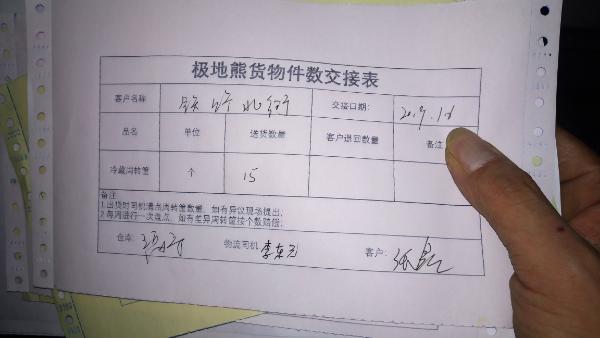 极地熊货物件数交接表
客户名称 交接日期:
品名 单位 送货数量 客户退回数量 备注
冷藏周转筐 个 15
备注
1.出货时司机清点周转筐数量,如有异议现场提出;
2.每周进行一次盘点,如有差异周转筐按个数赔偿;
仓库: 物流司机: 李东元 客户: